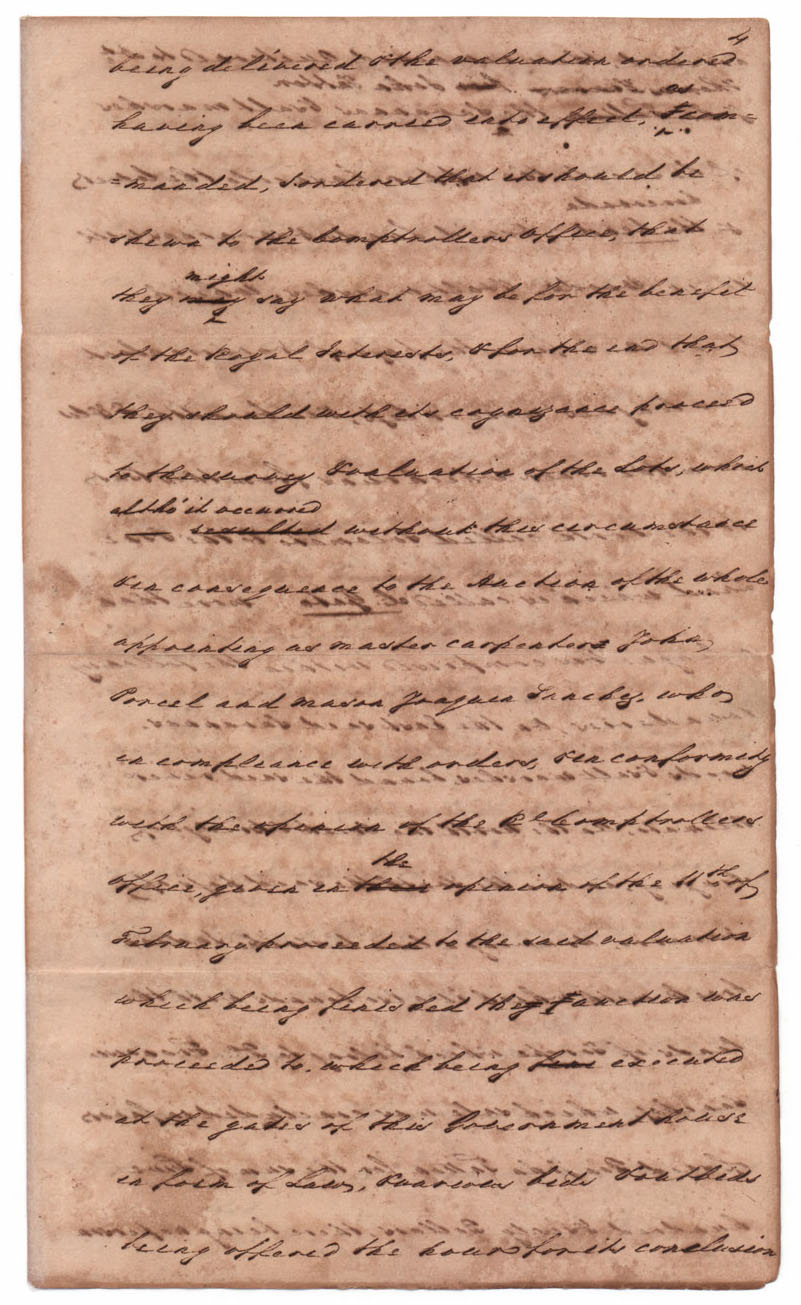 4
being delivered & the valuation ordered
as
having been carried into effect, I com=
=manded, & ordered that it should be
shewn to the Comptrollers Office, that
might
they may say what may be for the benefit
of the Royal Interests, & for the end that
they should with its cognizance proceed
to the survey & valuation of the Lots, which
altho' it occurred
resulted without this circumstance
& in consequence to the Auction of the whole
appointing as master carpenter John
Porcel and mason Joaquin Sanchez, who
in compliance with orders, & in conformity
with the opinion of the Rl. Comptrollers
the
Office, given in their opinion of the 11th of
February proceeded to the said valuation
which being finished the Auction was
proceeded to. which being executed
at the gates of this Government house
in form of Law, & various bids & outbids
being offered the hour for its conclusion